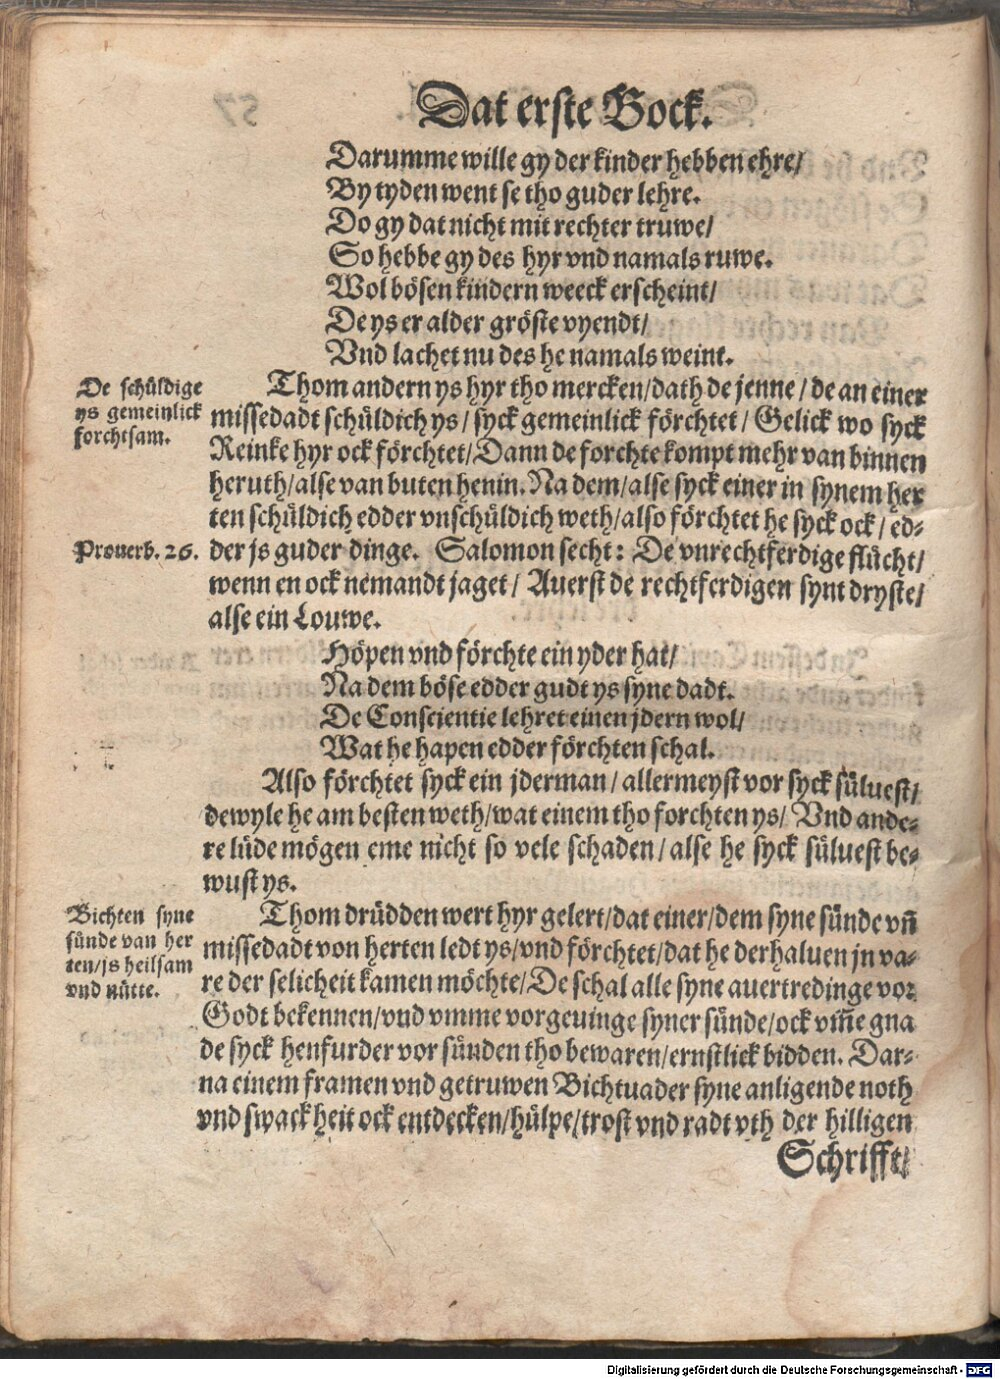 Dat erste Bock.
Darumme wille gy der kinder hebben ehre/
By tyden went se tho guder lehre.
Do gy dat nicht mit rechter truwe/
So hebbe gy des hyr vnd namals ruwe.
Wol bösen kindern weeck erscheint/
De ys er alder gröste vyendt/
Vnd lachet nu des he namals weint.
De schüldige
ys gemeinlick
forchtsam.
Thom andern ys hyr tho mercken/dath de jenne/de an einer
missedadt schüldich ys/syck gemeinlick förchtet/Gelick wo syck
Reinke hyr ock förchtet/Dann de forchte kompt mehr van binnen
heruth/alse van buten henin. Na dem/alse syck einer in synem her
ten schüldich edder vnschüldich weth/also förchtet he syck ock/ed-
Prouerb. 26.
der js guder dinge. Salomon secht: De vnrechtferdige flücht/
wenn en ock nemandt jaget/Auerst de rechtferdigen synt dryste/
alse ein Louwe.
Höpen vnd förchte ein yder hat/
Na dem böse edder gudt ys syne dadt.
De Conscientie lehret einen jdern wol/
Wat he hapen edder förchten schal.
Also förchtet syck ein jderman/allermeyst vor syck süluest/
dewyle he am besten weth/wat einem tho forchten ys/Vnd ande-
re lüde mögen eme nicht so vele schaden/alse he syck süluest be-
wust ys.
Bichten syne
sünde van her
ten/js heilsam
vnd nütte.
Thom drüdden wert hyr gelert/dat einer/dem syne sünde vñ
missedadt von herten ledt ys/vnd förchtet/dat he derhaluen jn va-
re der selicheit kamen möchte/De schal alle syne auertredinge vor
Godt bekennen/vnd vmme vorgeuinge syner sünde/ock vm̃e gna
de syck henfurder vor sünden tho bewaren/ernstlick bidden. Dar-
na einem framen vnd getruwen Bichtuader syne anligende noth
vnd swackheit ock entdecken/hülpe/trost vnd radt vth der hilligen
Schrifft/
Digitalisierung gefördert durch die Deutsche Forschungsgemeinschaft - DFG